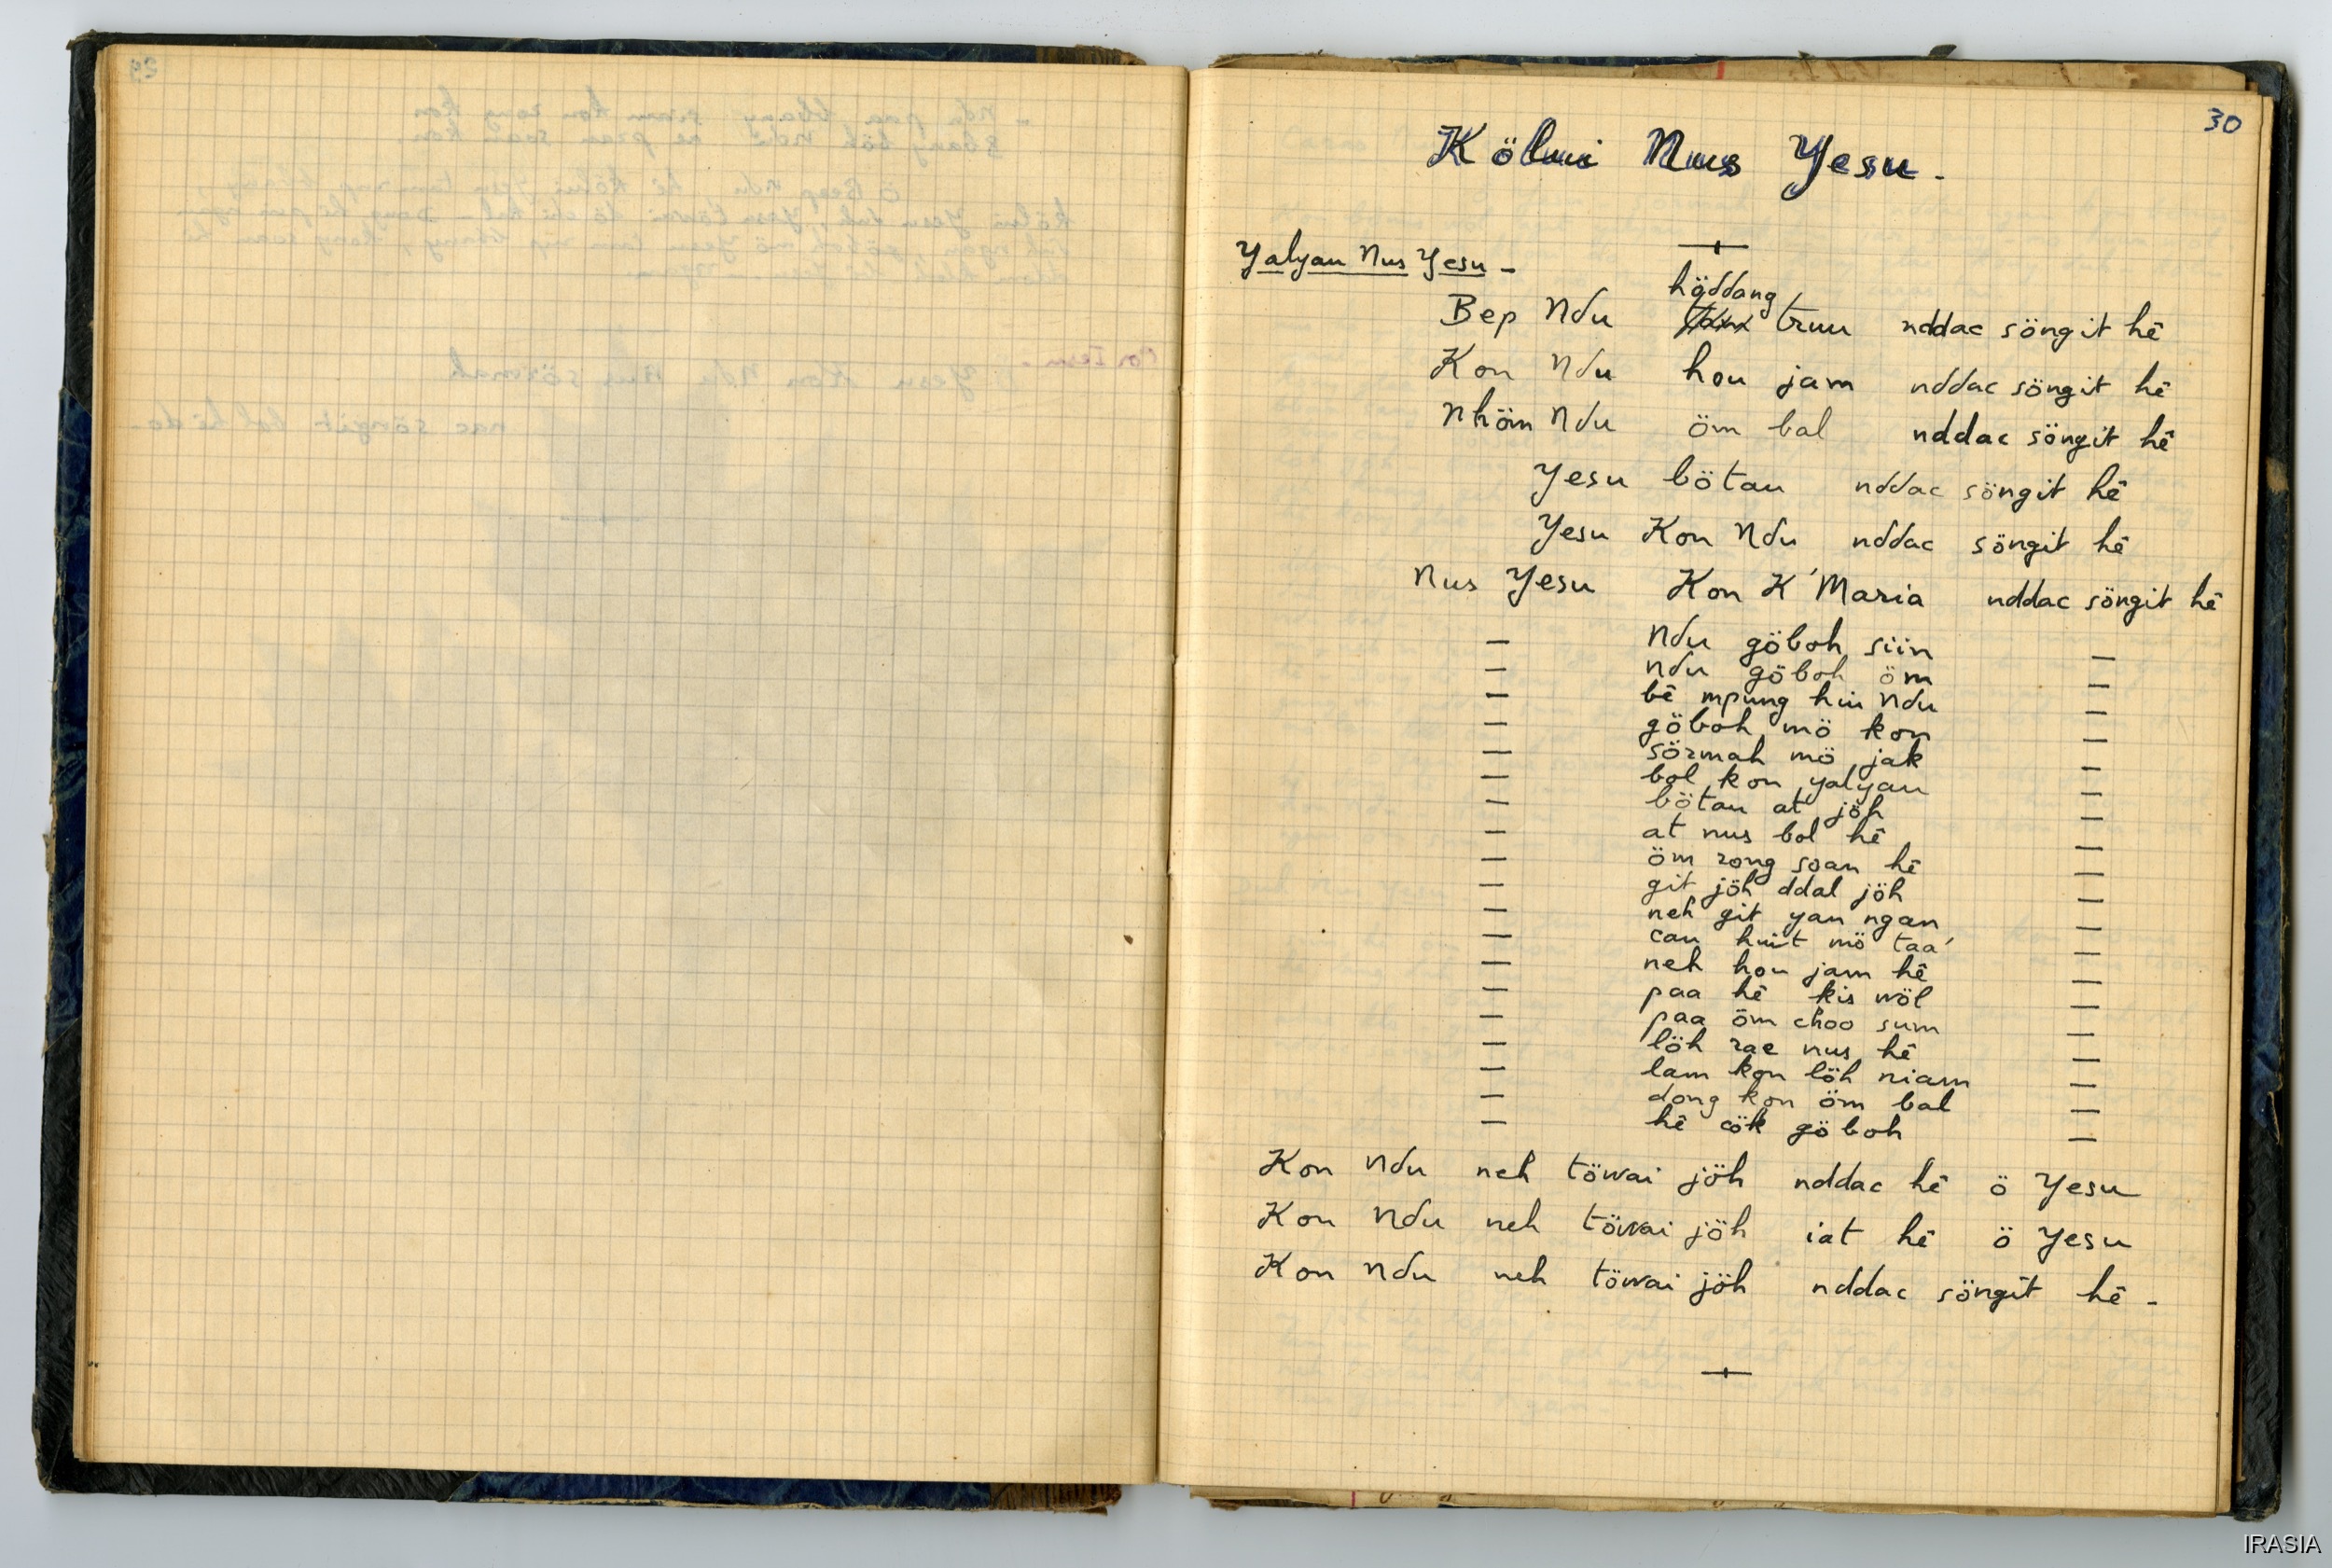 30
Kölwi Nus Yesu -
Yalyau Nus Yesu -
höddang
Bep Ndu truu nddac söngit hê
Kon Ndu hou jam nddac söngit hê
Nhöm Ndu öm bal nddac söngit hê
Yesu bötau nddac söngit hê
Yesu Kon Ndu nddac söngit hê
Nus Yesu Kon K'Maria nddac söngit hê
— Ndu göboh siin —
— ndu göboh öm —
— bê mpung hiu Ndu —
— göboh mö kon —
— sörmah mö jak —
— bol kon yalyau —
— bötau at jöh —
— at nus bol hê —
— öm rong soan hê —
— git jöh ddal jöh —
— neh git yau ngan —
— cau huit mö taa' —
— neh hou jam hê —
— paa hê kis wöl —
— paa öm choo sum —
— löh rae nus hê —
— lam kon löh niam —
— dong kon öm bal —
— hê cök göboh —
Kon Ndu neh töwai jöh nddac hê ö Yesu
Kon Ndu neh töwai jöh iat hê ö Yesu
Kon Ndu neh töwai jöh nddac söngit hê -
IRASIA